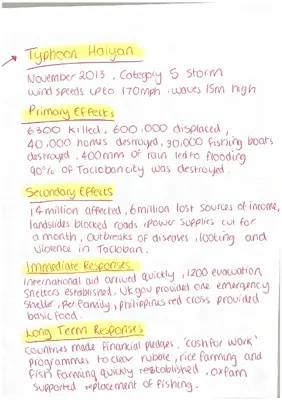 Typhoon Haiyan
November 2013. Category 5 storm
wind speeds up to 170mph. waves 15m high
Primary Effects
6300 killed, 600,000 displaced,
40,000 homes destroyed, 30,000 fishing boats
destroyed. 400mm of rain led to flooding
90% of Tacloban city was destroyed.
Secondary Effects
14 million affected, 6 million lost sources of income,
landslides blocked roads, power supplies cut for
a month, outbreaks of diseases, looting and
violence in Tacloban.
Immediate Responses.
International aid arrived quickly, 1200 evacuation
shelters established. UK gov provided one emergency
shelter per family, philippines red cross provided
basic food.
Long Term Responses
countries made financial pledges, 'cash for work'
programmes to clear rubble, rice farming and
fish farming quickly restablished, oxfam
supported replacement of fishing.